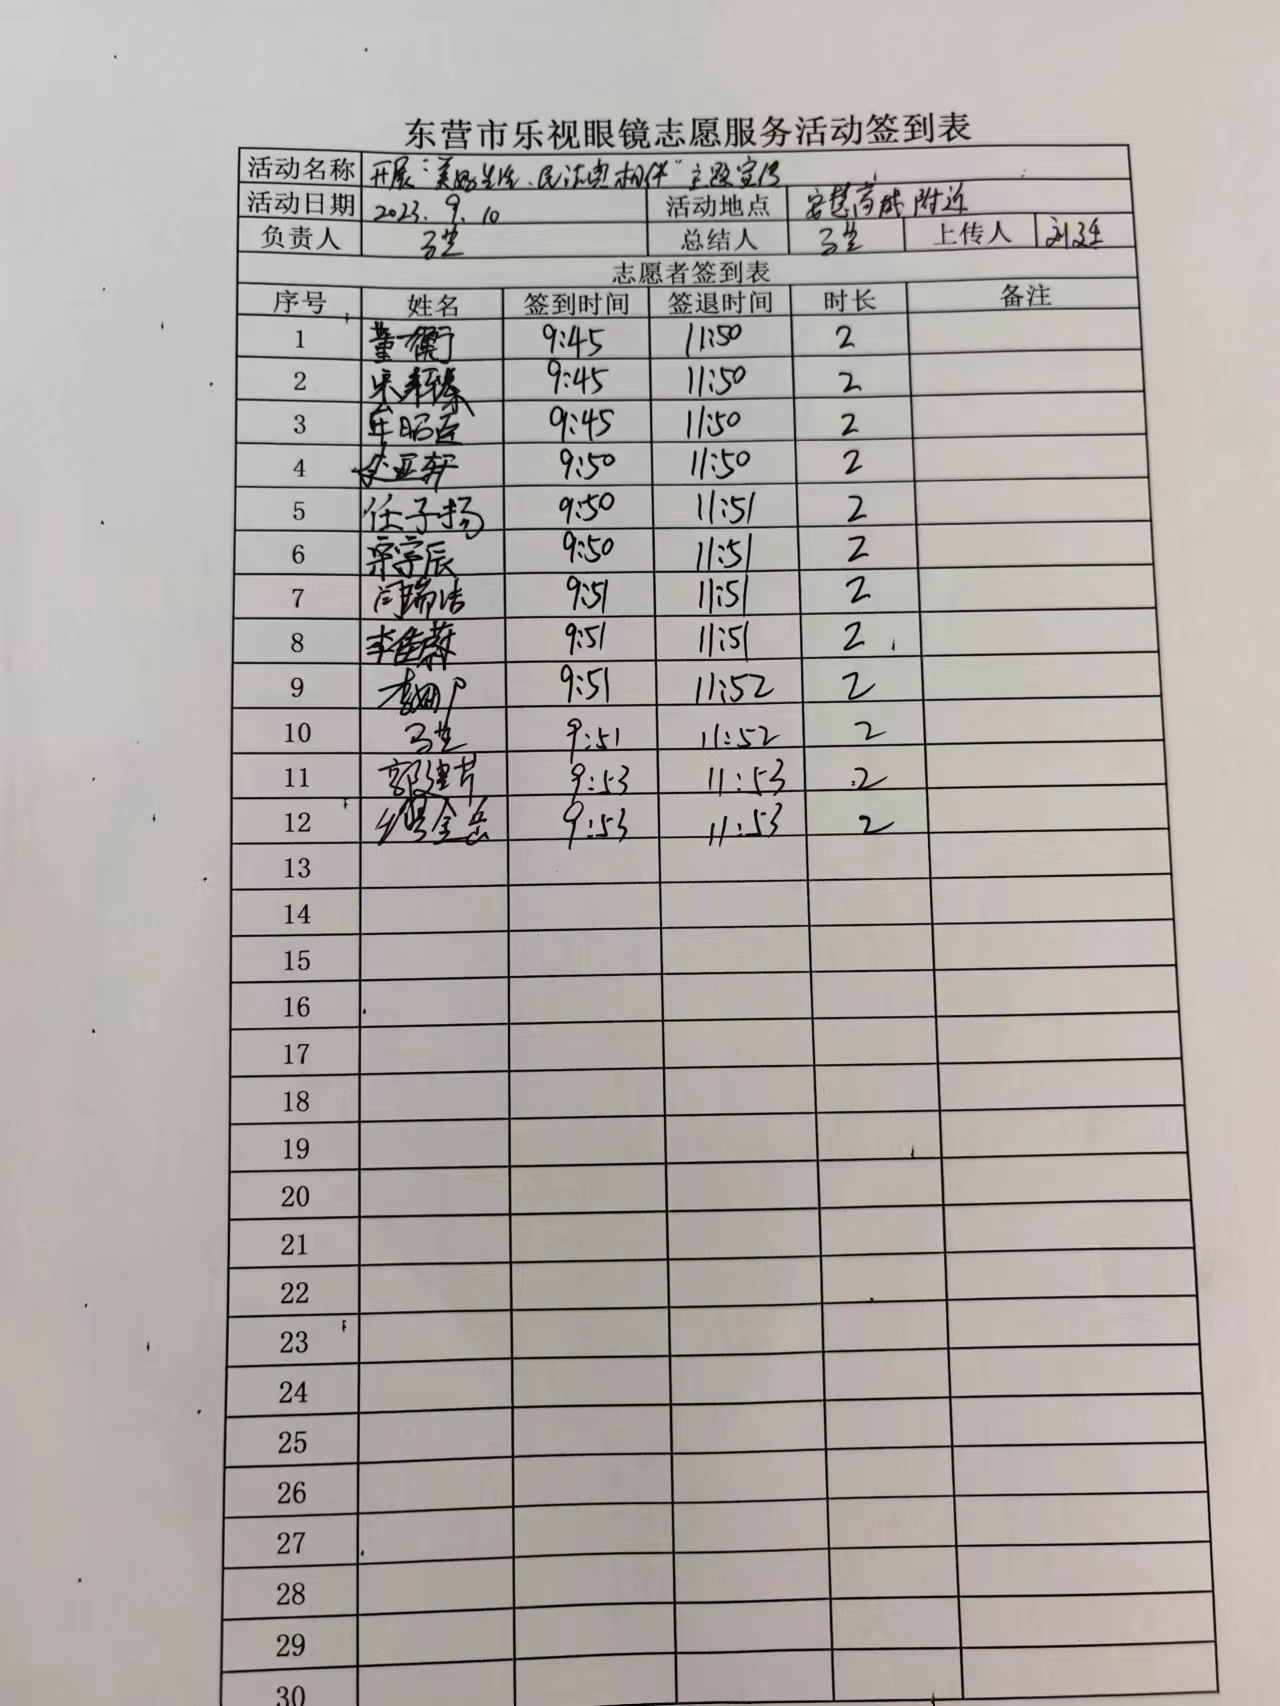 东营市乐视眼镜志愿服务活动签到表
活动名称 开展“美好生活、民法典相伴”主题宣传
活动日期 2023.9.10 活动地点 安慧商城附近
负责人 马兰 总结人 马兰 上传人
志愿者签到表
序号 姓名 签到时间 签退时间 时长 备注
1 董衡 9:45 11:50 2
2 9:45 11:50 2
3 9:45 11:50 2
4 9:50 11:50 2
5 任子扬 9:50 11:51 2
6 宗宇辰 9:50 11:51 2
7 闫瑞洁 9:51 11:51 2
8 李佳蔚 9:51 11:51 2
9 9:51 11:52 2
10 马兰 9:51 11:52 2
11 郭建芳 9:53 11:53 2
12 9:53 11:53 2
13
14
15
16
17
18
19
20
21
22
23
24
25
26
27
28
29
30